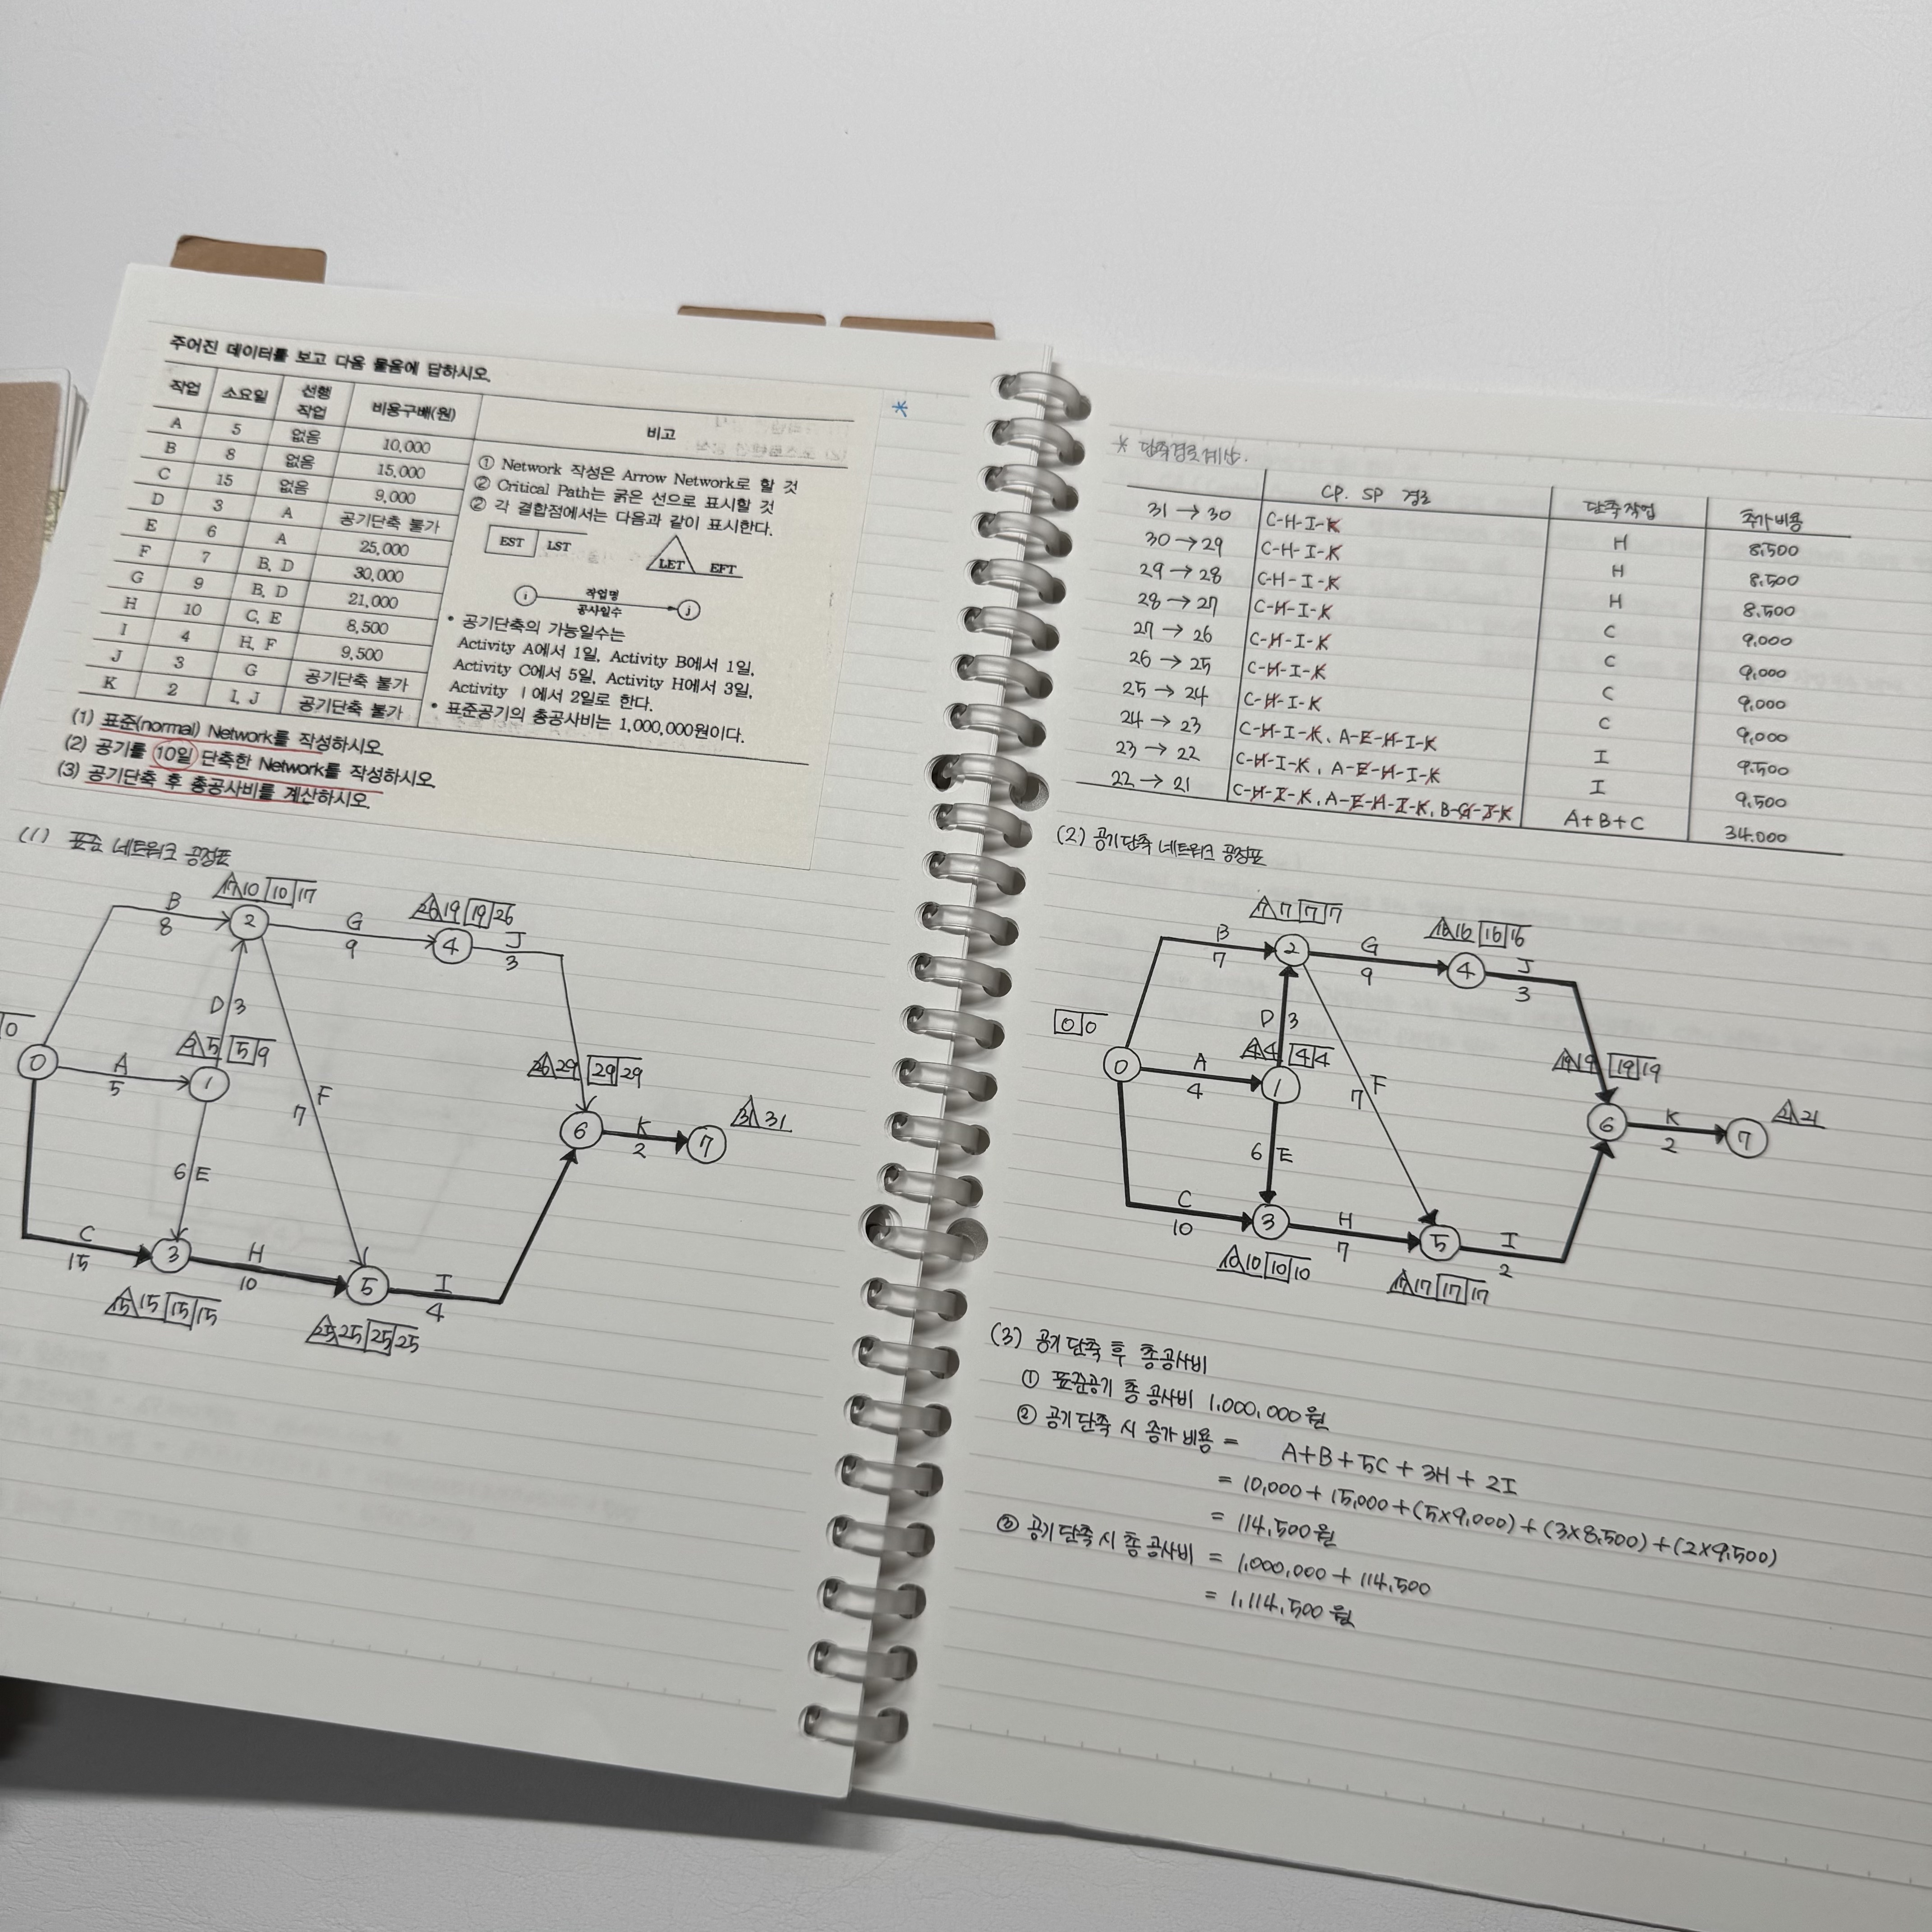 주어진 데이터를 보고 다음 물음에 답하시오.
작업 소요일 선행 작업 비용구배(원) 비고
A 5 없음 10,000
B 8 없음 15,000
C 15 없음 9,000
D 3 A 공기단축 불가
E 6 A 25,000
F 7 B, D 30,000
G 9 B, D 21,000
H 10 C, E 8,500
I 4 H, F 9,500
J 3 G 공기단축 불가
K 2 I, J 공기단축 불가
① Network 작성은 Arrow Network로 할 것
② Critical Path는 굵은 선으로 표시할 것
② 각 결합점에서는 다음과 같이 표시한다.
EST LST LET EFT
i 작업명 공사일수 j
• 공기단축의 가능일수는
Activity A에서 1일, Activity B에서 1일,
Activity C에서 5일, Activity H에서 3일,
Activity I에서 2일로 한다.
• 표준공기의 총공사비는 1,000,000원이다.
(1) 표준(normal) Network를 작성하시오.
(2) 공기를 10일 단축한 Network를 작성하시오.
(3) 공기단축 후 총공사비를 계산하시오.
*
(1) 표준 네트워크 공정표
17 10 10 17
B 8
2
G 9
26 19 19 26
4
J 3
D 3
9 5 5 9
0
0
A 5
1
F 7
26 29 29 29
6
K 2
31 31
7
6 E
C 15
3
H 10
5
I 4
15 15 15 15
25 25 25 25
* 단축경로계산.
CP. SP 경로 단축작업 추가비용
31 → 30 C-H-I-K H 8,500
30 → 29 C-H-I-K H 8,500
29 → 28 C-H-I-K H 8,500
28 → 27 C-H-I-K C 9,000
27 → 26 C-H-I-K C 9,000
26 → 25 C-H-I-K C 9,000
25 → 24 C-H-I-K C 9,000
24 → 23 C-H-I-K, A-E-H-I-K I 9,500
23 → 22 C-H-I-K, A-E-H-I-K I 9,500
22 → 21 C-H-I-K, A-E-H-I-K, B-G-J-K A+B+C 34,000
(2) 공기단축 네트워크 공정표
7 7 7 7
B 7
2
G 9
16 16 16 16
4
J 3
0 0
D 3
4 4 4 4
0
A 4
1
F 7
19 19 19 19
6
K 2
21 21
7
6 E
C 10
3
H 7
5
I 2
10 10 10 10
17 17 17 17
(3) 공기단축 후 총공사비
① 표준공기 총 공사비 1,000,000원
② 공기단축 시 증가 비용 = A+B+5C+3H+2I
= 10,000+15,000+(5×9,000)+(3×8,500)+(2×9,500)
= 114,500원
③ 공기단축 시 총 공사비 = 1,000,000 + 114,500
= 1,114,500원